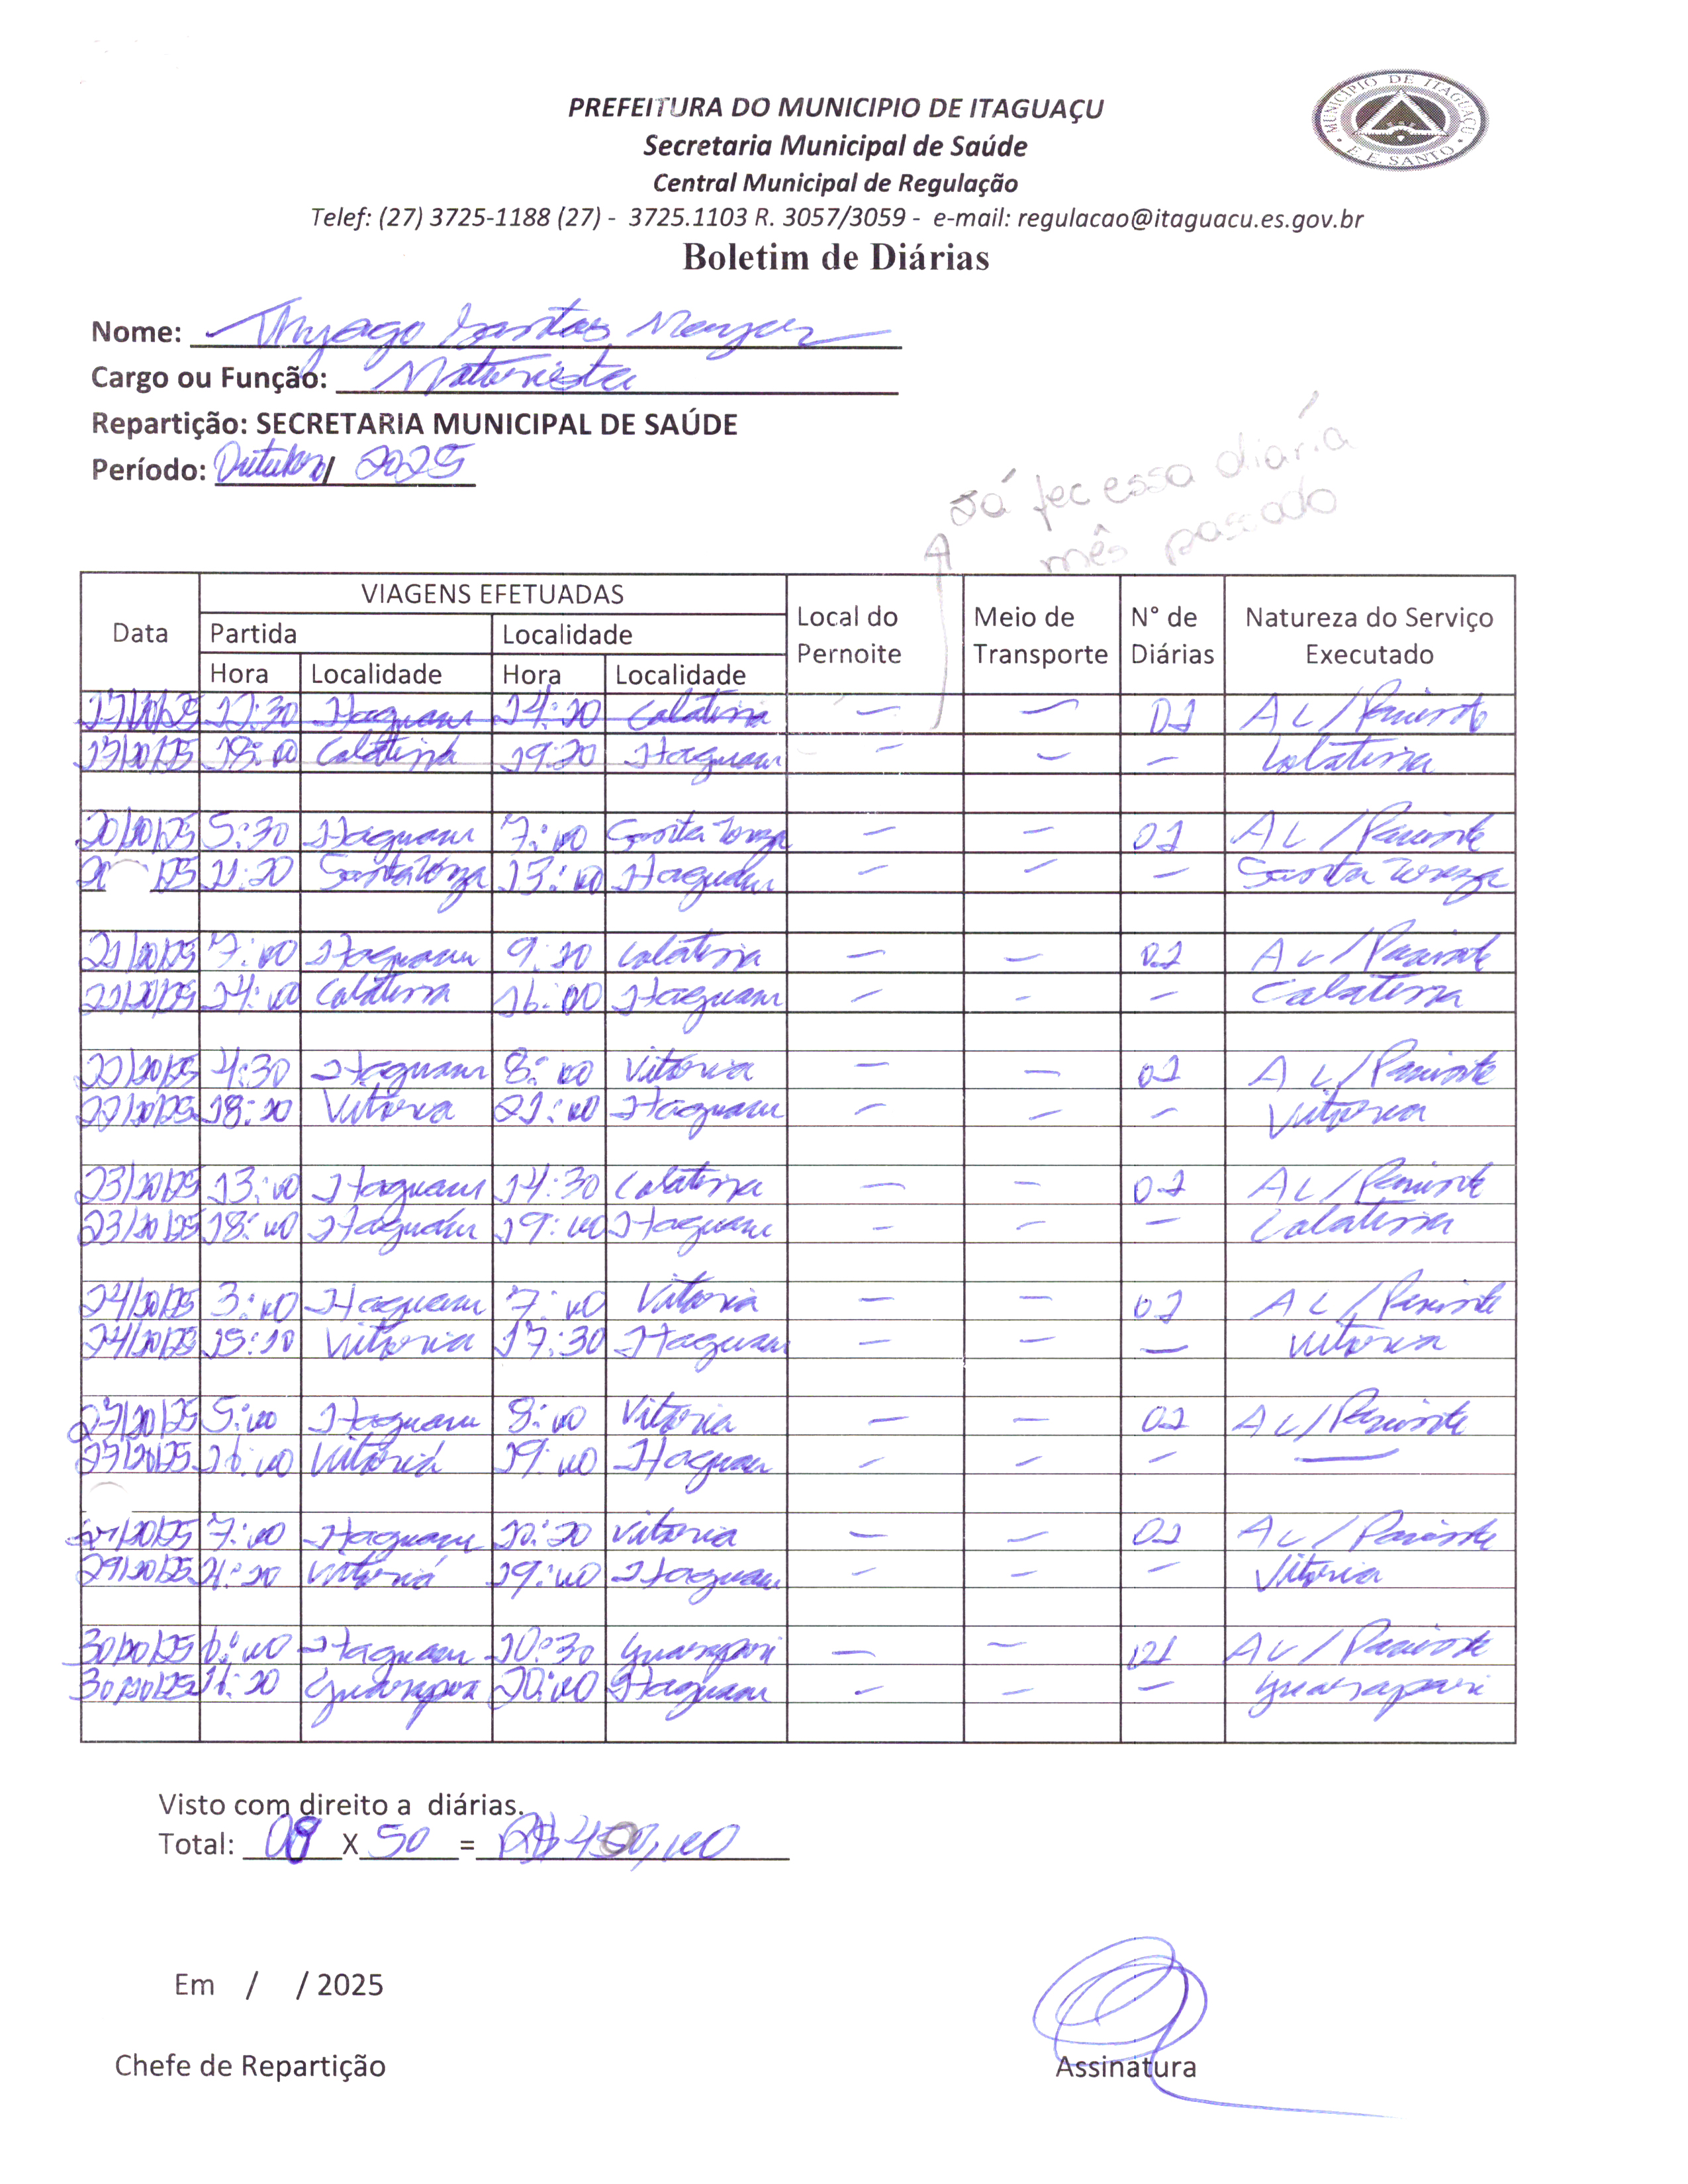 PREFEITURA DO MUNICIPIO DE ITAGUAÇU
Secretaria Municipal de Saúde
Central Municipal de Regulação
Telef: (27) 3725-1188 (27) - 3725.1103 R. 3057/3059 - e-mail: regulacao@itaguacu.es.gov.br
Boletim de Diárias
MUNICÍPIO DE ITAGUAÇU • E. E. SANTO •
Nome: Thyago Santos
Cargo ou Função: Motorista
Repartição: SECRETARIA MUNICIPAL DE SAÚDE
Período: Outubro / 2025
Já fec essa diária
mês passado
Data VIAGENS EFETUADAS Local do Pernoite Meio de Transporte N° de Diárias Natureza do Serviço Executado
Partida Localidade
Hora Localidade Hora Localidade
17/10/25 12:30 Itaguaçu 14:20 Colatina — — 01 A C / Paciente
17/10/25 18:00 Colatina 19:20 Itaguaçu — — — Colatina
20/10/25 5:30 Itaguaçu 7:00 Santa Tereza — — 01 A C / Paciente
/25 11:20 Santa Tereza 13:00 Itaguaçu — — — Santa Tereza
21/10/25 7:00 Itaguaçu 9:20 Colatina — — 01 A C / Paciente
21/10/25 14:00 Colatina 16:00 Itaguaçu — — — Colatina
22/10/25 4:30 Itaguaçu 8:00 Vitoria — — 01 A C / Paciente
22/10/25 18:20 Vitoria 21:00 Itaguaçu — — — Vitoria
23/10/25 13:00 Itaguaçu 14:30 Colatina — — 01 A C / Paciente
23/10/25 18:00 Itaguaçu 19:00 Itaguaçu — — — Colatina
24/10/25 3:00 Itaguaçu 7:00 Vitoria — — 01 A C / Paciente
24/10/25 15:10 Vitoria 17:30 Itaguaçu — — — Vitoria
27/10/25 5:00 Itaguaçu 8:00 Vitoria — — 01 A C / Paciente
27/10/25 16:00 Vitoria 19:00 Itaguaçu — — — —
/10/25 7:00 Itaguaçu 10:20 Vitoria — — 01 A C / Paciente
29/10/25 Vitoria 19:00 Itaguaçu — — — Vitoria
30/10/25 6:00 Itaguaçu 10:30 Guarapari — — 01 A C / Paciente
30/10/25 16:20 Guarapari 20:00 Itaguaçu — — — Guarapari
Visto com direito a diárias.
Total: 09 X 50 = R$ 450,00
Em / / 2025
Chefe de Repartição
Assinatura